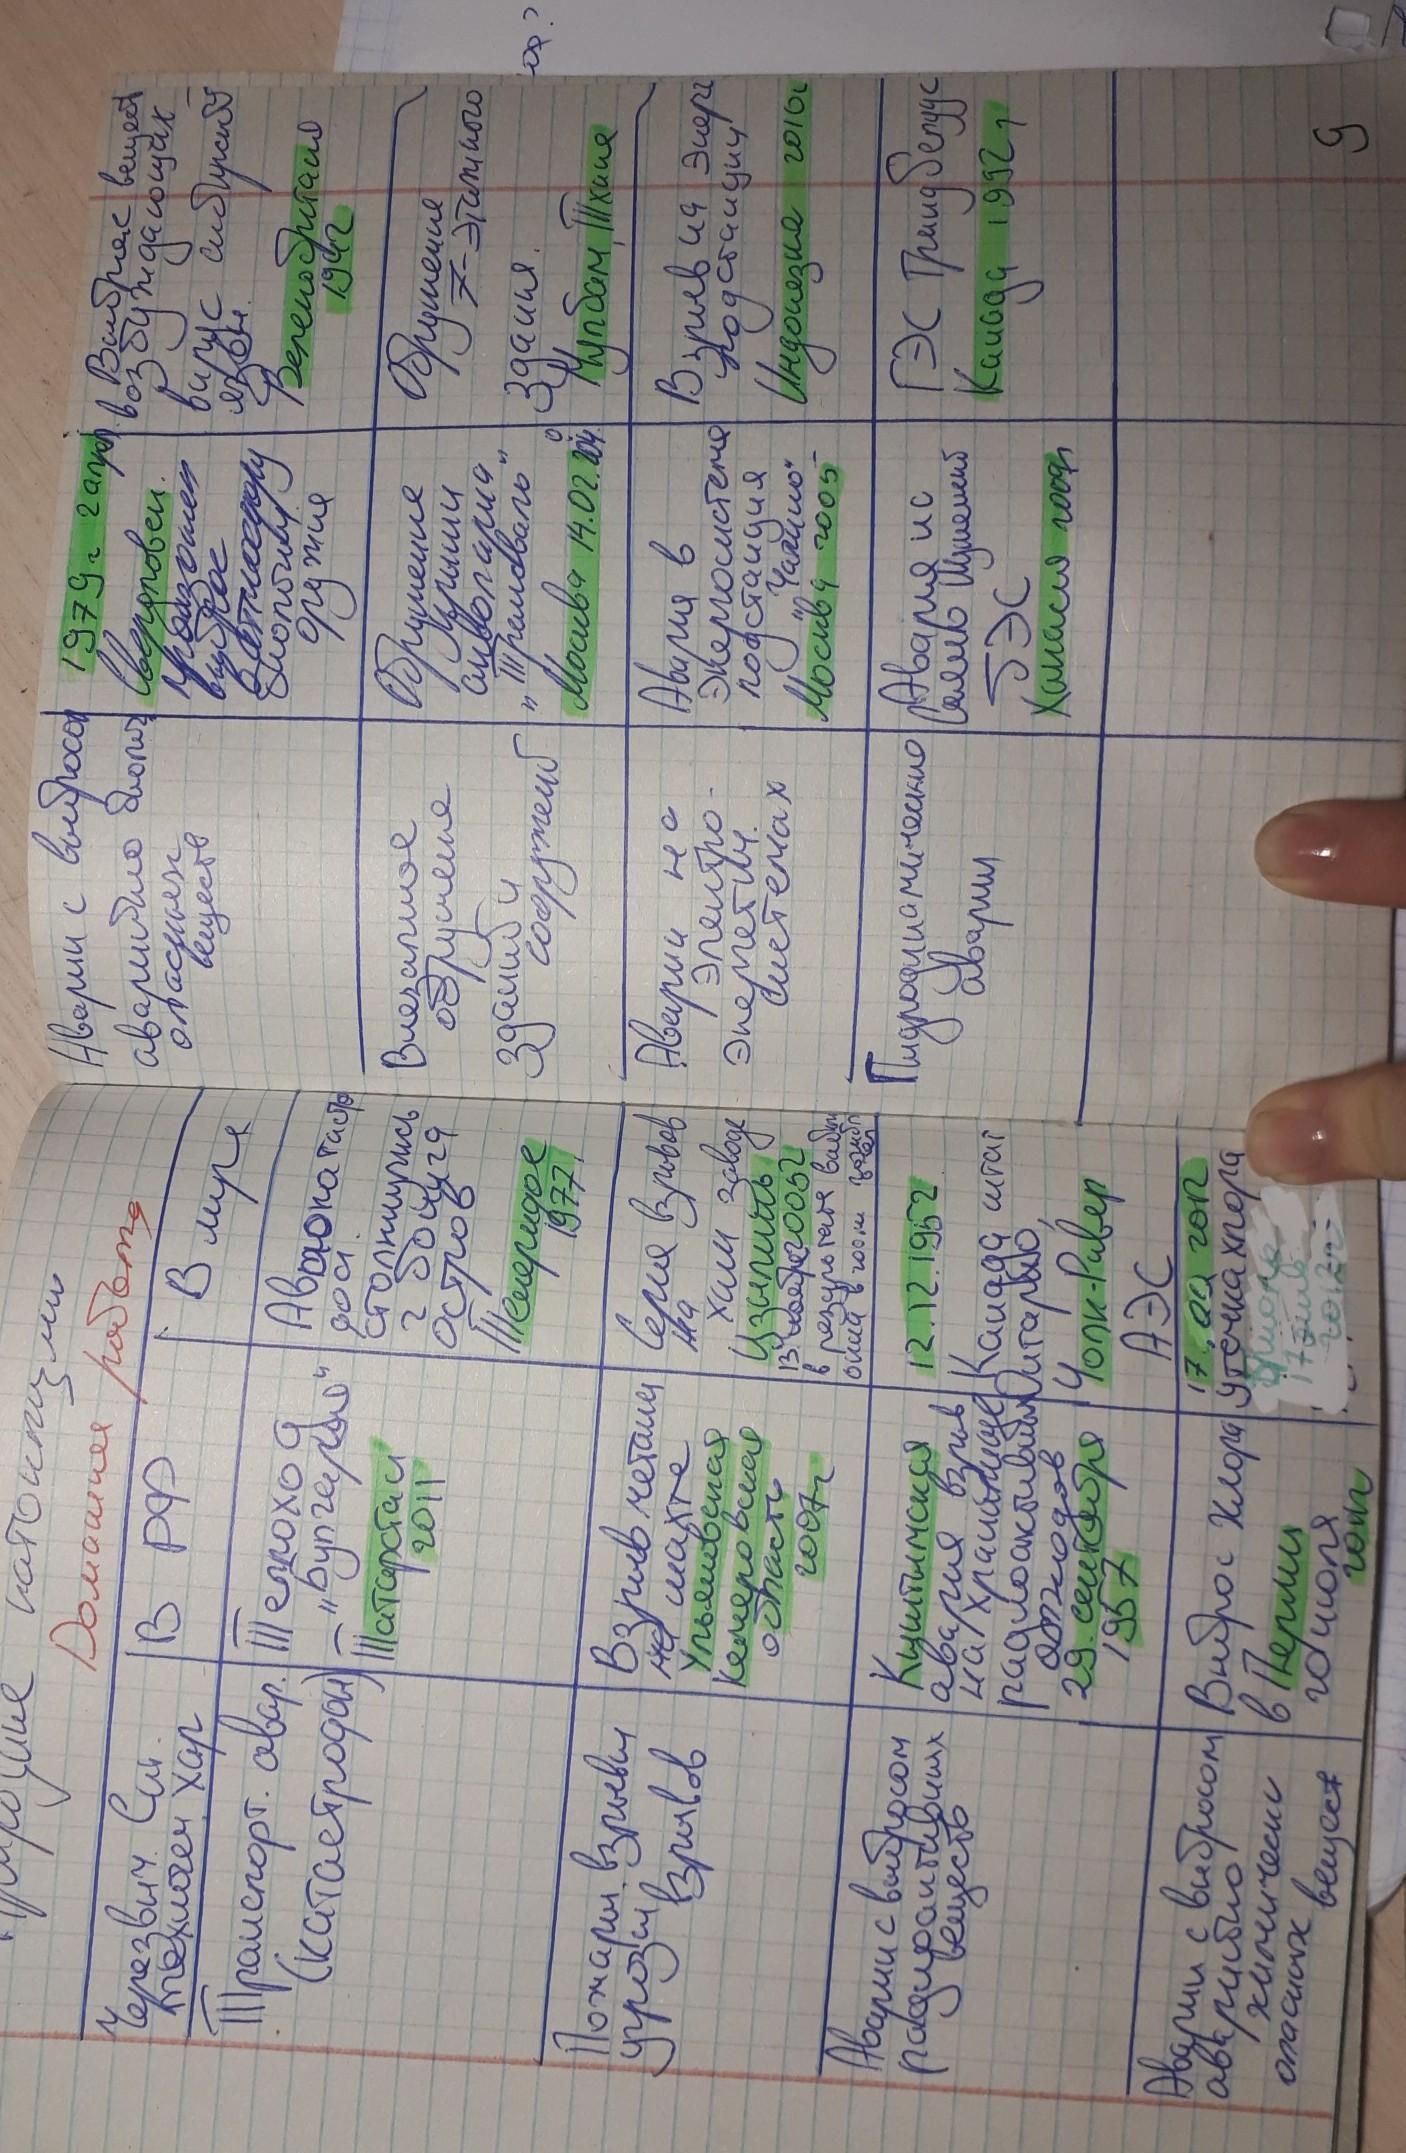 Домашняя работа
Черезвич. Сит.
техноген. хар
В РФ
В мире
Транспорт. авар.
(катастрофы)
Теплоход
"Булгария"
Татарстан
2011
Авиакатастр
столкнулись
2 боинга
остров
Тенерифе
1977
Пожары, взрывы
угрозы взрывов
Взрыв метана
на шахте
Ульяновская
Кемеровская
область
2007г
Серия взрывов
на хим заводе
Цзилинь
13 ноября 2005г
в результате
Аварии с выбросом
радиоактивных
веществ
Кыштымская
авария взрыв
на хранилище
радиоактивных
отходов
29. сентября
1957
12.12.1952
Канада штат
Онтарио,
Чолк-Ривер
АЭС
Аварии с выбросом
аварийно
химически
опасных веществ
Выброс хлора
в Перми
20 июля
Утечка хлора
Аварии с выбросом
аварийно биологич
опасных
веществ
1979г 2 апр.
Свердловск.
произошел
выброс
биологич
оружия
Выброс вещест
возбуждающих
вирус сибирской
язвы.
Великобритания
Внезапное
обрушение
зданий и
сооружений
Обрушение
крыши
аквапарка
"Трансвааль"
Москва 14.02.2004.
Обрушение
7-этажного
здания.
Мумбаи, Тхане
Аварии на
электро-
энергетич.
системах
Авария в
энергосистеме
подстанция
"Чагино"
Москва 2005
Взрыв на энерг
подстанции
Индонезия 2016г
Гидродинамические
аварии
Авария на
Саяно Шушенской
ГЭС
Хакасия 2009г
ГЭС Гранд Рапидс
Канада 1992г
9